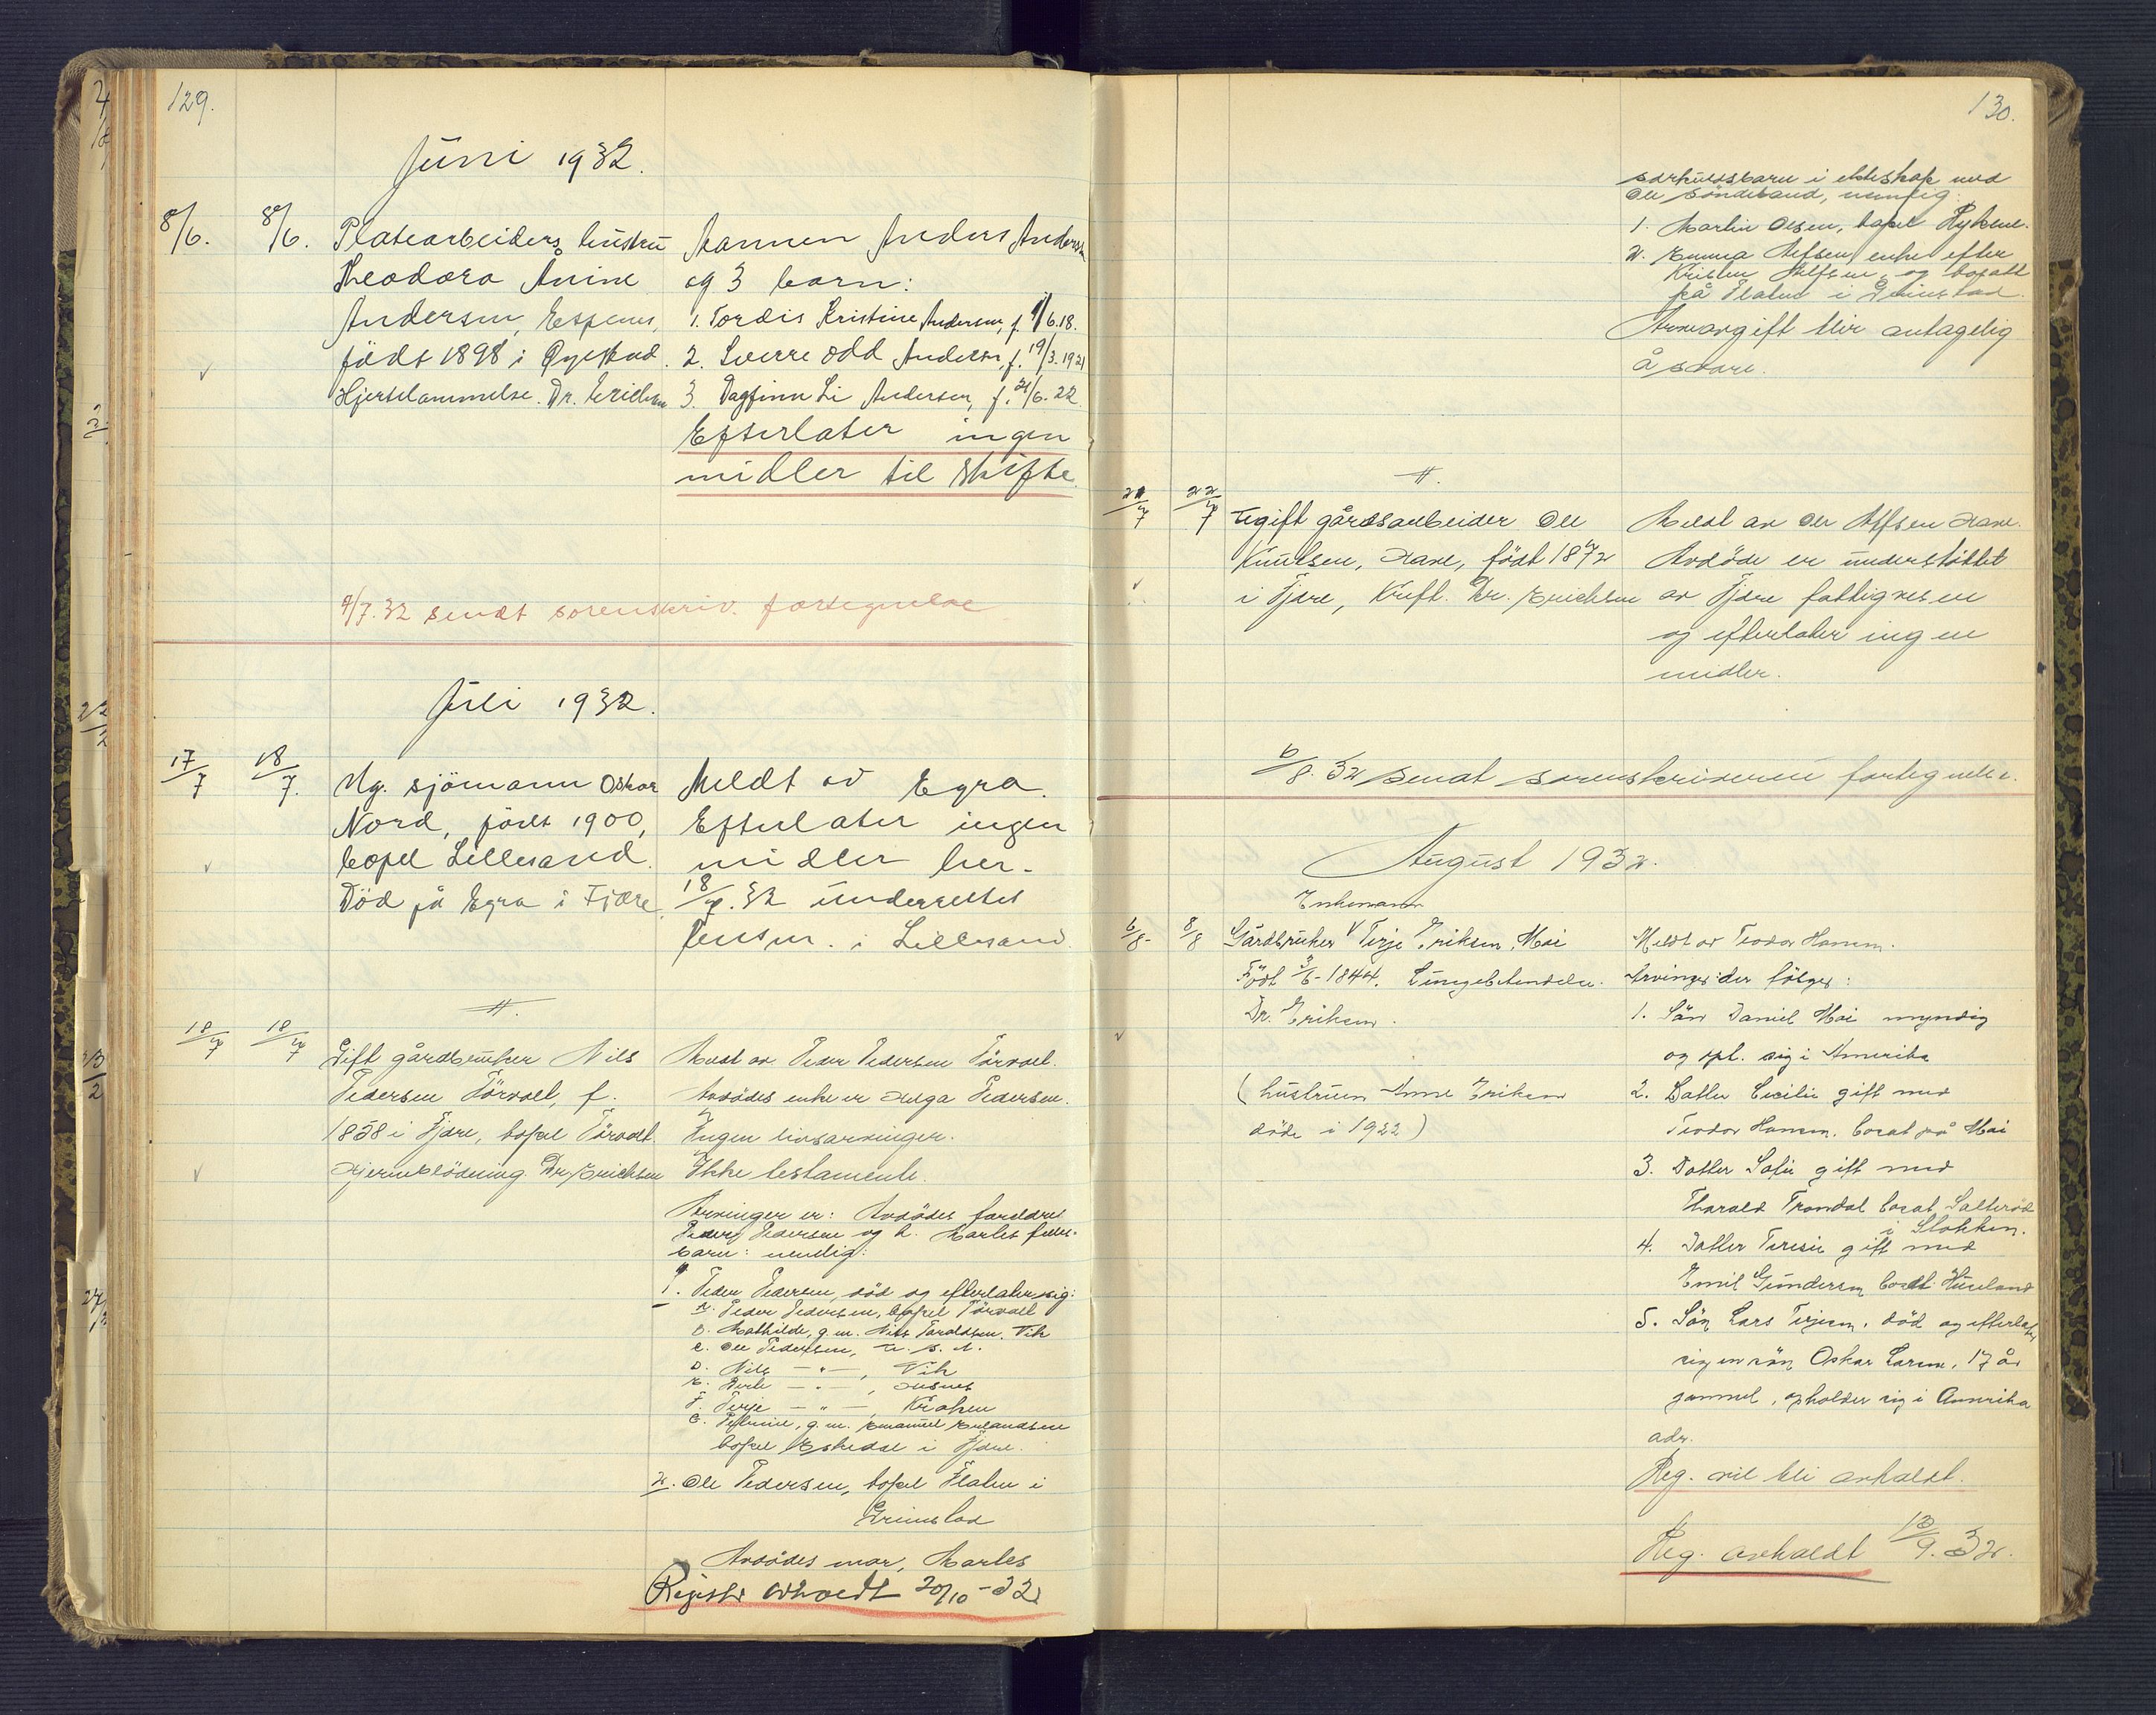 129.
Juni 1932.
8/6. 8/6. Platearbeiders hustru
Theodora Ånine
Andersen, Espenes,
födt 1898 i Øyestad.
Hjertelammelse. Dr. Erichsen
Mannen Anders Andersen
og 3 barn:
1. Tordis Kristine Andersen, f. 1/6.18.
2. Sverre Odd Andersen, f. 19/3.1921
3. Dagfinn Li Andersen, f. 21/6.22.
Efterlater ingen
midler til skifte.
9/7.32 sendt sorenskriv. fortegnelse
Juli 1932.
17/7 18/7. Ug. sjömann Oskar
Nord, födt 1900,
bopel Lillesand.
Död på Egra i Fjære.
Meldt av Egra.
Efterlater ingen
midler her.
18/7.32 underrettet
lensm. i Lillesand.
18/7 18/7 Gift gårdbruker Nils
Pedersen Törvolt, f.
1858 i Fjære, bopel Törvolt.
Hjerneblödning. Dr. Erichsen
Meldt av Peder Pedersen Törvolt.
Avdödes enke er Helga Pedersen.
Ingen livsarvinger.
Ikke testamente.
Arvinger er: Avdödes foreldre
Peder Pedersen og h. Martes felles-
barn: nemlig:
1. Peder Pedersen, död og efterlater sig:
a. Peder Pedersen, bopel Törvolt
b. Mathilde, g.m. Nils Taraldsen, Vik
c. Ole Pedersen, U.S.A.
d. Nils — " —, Vik
e. — " —,
f. Terje — " —, Kroken
g. g.m. Emanuel Erlandsen
bopel Eskedal i Fjære.
2. Ole Pedersen, bopel Flaten i
Grimstad
Avdödes mor, Martes
Registr. avholdt 20/10-32
130.
særkullsbarn i ekteskap med
Ole Söndebaud, nemlig:
1. Martin Olsen, bopel Rykene.
2. Emma Alfsen, enke efter
Kristen Alfsen, og bosatt
på Flaten i Grimstad.
Arveavgift blir antagelig
å svare.
21/7 22/7 Ugift gårdsarbeider Ole
Knutsen, Have, födt 1872
i Fjære, Kreft. Dr. Erichsen
Meldt av Ole Alfsen Have.
Avdöde er understöttet
av Fjære fattigvesen
og efterlater ingen
midler.
6/8.32 sendt sorenskriveren fortegnelse.
August 1932.
Enkemann
6/8- 8/8 Gårdbruker Terje Eriksen, Moi
Födt 3/6-1844. Lungebetendelse.
Dr. Eriksen.
(hustruen Anne Eriksen
döde i 1922)
Meldt av Teodor Hansen.
Arvinger der fölger:
1. Sön Daniel Moi myndig
og oph. sig i Amerika
2. Datter Cecilie gift med
Teodor Hansen, bosat på Moi
3. Datter Sofie gift med
Harald Tromdal bosat Salteröd
i Stokken.
4. Datter Teresie gift med
Emil Gundersen bosatt Huseland
5. Sön Lars Terjesen, död og efterlater
sig en sön Oskar Larsen, 17 år
gammel, opholder sig i Amerika
adr.
Reg. vil bli avholdt.
Reg. avholdt 13/9.32.